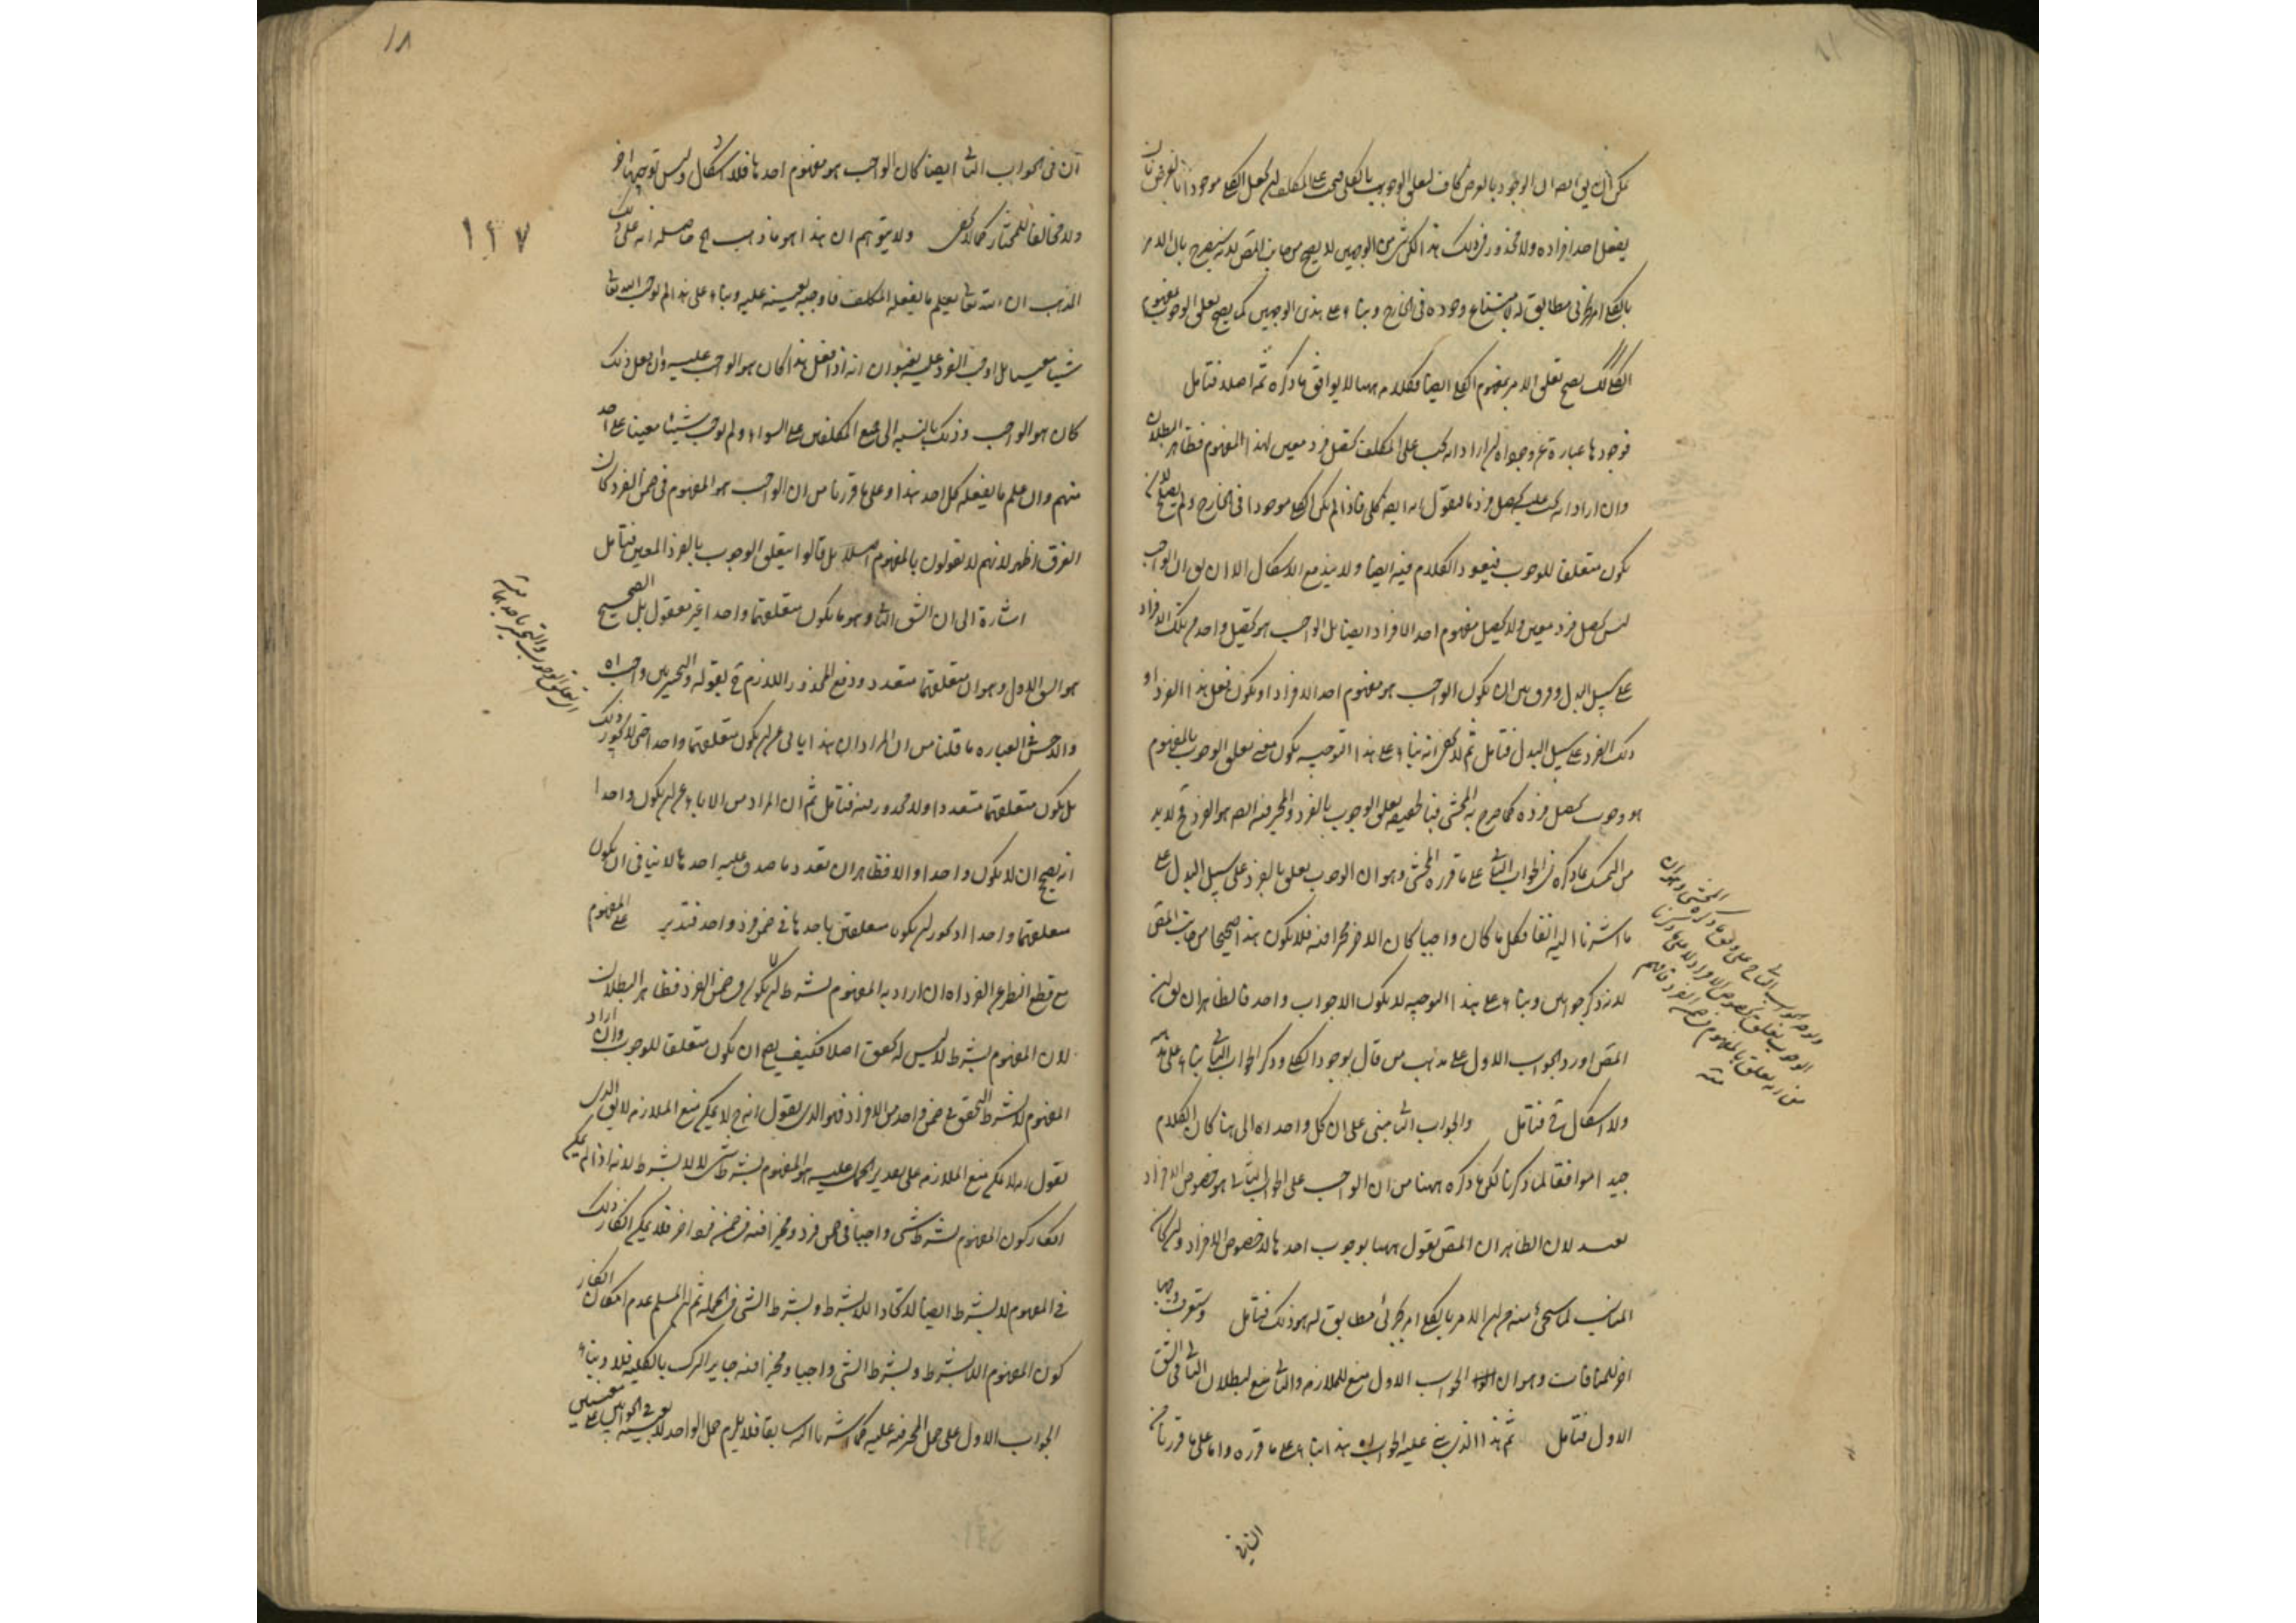 يمكن ان يق ايضا ان الوجود بالعرض كاف لتعلق الوجوب بالكلي فيجب على المكلف ان يجعل الكلي موجودا بالعرض بان
يفعل احد افراده ولا محذور في ذلك هذا لكن شئ من الوجهين لا يصح من جانب المص لانه سيصرح بان الامر
بالكلي امر بجزئي مطابق له لامتناع وجوده في الخارج وبناء على هذين الوجهين كما يصح تعلق الوجوب بمفهوم
الكلي كك يصح تعلق الامر بمفهوم الكلي ايضا فكلامه ههنا لا يوافق ما ذكره ثمه اصلا فتأمل
فوجودها عبارة عن وجود اه ان اراد انه يجب على المكلف تحصيل فرد معين لهذا المفهوم فظاهر البطلان
وان اراد انه يجب عليه تحصيل فرد ما فنقول انه ايضا كلي فاذا لم يكن الكلي موجودا في الخارج ولم يصلح لان
يكون متعلقا للوجوب فيعود الكلام فيه ايضا ولا يندفع الاشكال الا ان يق ان الواجب
ليس تحصيل فرد معين ولا تحصيل مفهوم احد الافراد ايضا بل الواجب هو تحصيل واحد من تلك الافراد
على سبيل البدل وفرق بين ان يكون الواجب هو مفهوم احد الافراد او يكون فعل هذا الفرد او
ذلك الفرد على سبيل البدل فتأمل ثم لا يخفى انه بناء على هذا التوجيه يكون معنى تعلق الوجوب بالمفهوم
هو وجوب تحصيل فرده كما صرح به المحشي فبالحقيقة تعلق الوجوب بالفرد والمخير فيه ايضا هو الفرد فح لا بد
من التمسك بما ذكره في الجواب الثاني على ما قرره المحشي وهو ان الوجوب تعلق بالفرد على سبيل البدل على
ما اشرنا اليه انفا فكل ما كان واجبا كان الاخر مخيرا فيه فلا يكون هذا صحيحا من جانب المص
لانه ذكر جوابين وبناء على هذا التوجيه لا يكون الا جواب واحد فالظاهر ان يق ان
المص اورد الجواب الاول على مذهب من قال بوجود الكلي وذكر الجواب الثاني بناء على مذهبه
ولا اشكال فح فتأمل والجواب الثاني مبنى على ان كل واحد اه الى هنا كان الكلام
جيدا موافقا لما ذكرنا لكن ما ذكره ههنا من ان الواجب على الجواب الثاني هو خصوص الافراد
بعيد لان الظاهر ان المص يقول ههنا بوجوب احدها لا خصوص الافراد وان كان
المناسب لما سيجئ منه من ان الامر بالكلي امر بجزئي مطابق له هو ذلك فتأمل وستعرف وجها
اخر للمنافات وهو ان الجواب الاول منع للملازمه والثاني منع لبطلان التالي في الشق
الاول فتأمل ثم هذا الذي بني عليه الجواب اه هذا بناء على ما قرره واما على ما قررنا من
الثاني
المحشي وهو ان
والوجه الجواب الثاني على وفق ما ذكره
الوجوب تعلق بخصوص الافراد لا على ما قررنا
من انه تعلق بالمفهوم في ضمن الفرد فافهم
منه
١٨
١٢٧
ان في الجواب الثاني ايضا كان الواجب هو مفهوم احدها فلا اشكال وليس توجيها اخر
ولا مخالفا للمختار كما لا يخفى ولا يتوهم ان هذا هو ما ذهب حاصله انه على ذلك
المذهب ان الله تعالى يعلم ما يفعله المكلف فاوجبه بعينه عليه وبناء على هذا لم يوجب الله تعالى
شيئا معينا بل اوجب الفرد عليه بعنوان انه اذا فعل هذا كان هو الواجب عليه وان فعل ذلك
كان هو الواجب وذلك بالنسبة الى جميع المكلفين على السواء ولم يوجب شيئا معينا على احد
منهم وان علم ما يفعله كل احد هذا وعلى ما قررنا من ان الواجب هو المفهوم في ضمن الفرد كان
الفرق اظهر لانهم لا يقولون بالمفهوم اصلا بل قالوا بتعلق الوجوب بالفرد المعين فتأمل
اشارة الى ان الشق الثاني وهو ما يكون متعلقهما واحدا غير معقول بل الصحيح
هو الشق الاول وهو ان متعلقهما متعدد ودفع المحذور اللازم ح بقوله والتخيير بين واجب اه
والاحسن في العبارة ما قلنا من ان المراد ان هذا يابى عن ان يكون متعلقهما واحدا حتى لا يجوز ذلك
بل يكون متعلقهما متعددا ولا محذور فيه فتأمل ثم ان المراد من الاباء عن ان يكون واحدا
انه يصح ان لا يكون واحدا والا فظاهر ان تعدد ما صدق عليه احدهما لا ينافي ان يكون
متعلقهما واحدا اذ يجوز ان يكونا متعلقين باحدها في ضمن فرد واحد فتدبر على المفهوم
مع قطع النظر عن الفرد اه ان اراد به المفهوم بشرط ان لا يكون في ضمن الفرد فظاهر البطلان
لان المفهوم بشرط لا ليس له تحقق اصلا فكيف يصح ان يكون متعلقا للوجوب وان اراد
المفهوم لا بشرط التحقق في ضمن واحد من الافراد فهو الذي يقول انه ح لا يمكن منع الملازمه لا يق الذي
نقول انه لا يمكن منع الملازمه على تقدير الحمل عليه هو المفهوم بشرط شئ لا لا بشرط لانه اذا لم يمكن
انكار كون المفهوم بشرط شئ واجبا في ضمن فرد ومخيرا فيه في ضمن فرد اخر فلا يمكن انكار ذلك
في المفهوم لا بشرط ايضا لاتحاد اللابشرط وبشرط الشئ في الجملة ثم ان المسلم عدم امكان انكار
كون المفهوم اللابشرط وبشرط الشئ واجبا ومخيرا فيه جاير الترك بالكلية فلا وبناء
الجواب الاول على حمل المخير فيه عليه كما اشرنا اليه سابقا فلا يلزم حمل الواحد لا بعينه في الجوابين على معنيين
اي تعلق الوجوب والتخيير باحد بها
منه